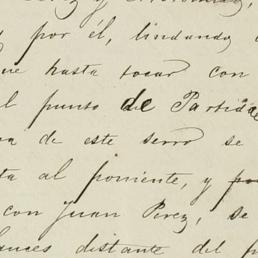 y
por él, lindando
ue hasta tocar con
l punto de Partida
a de este serro se
ta al poniente, y
con Juan Perez, se
distante del p